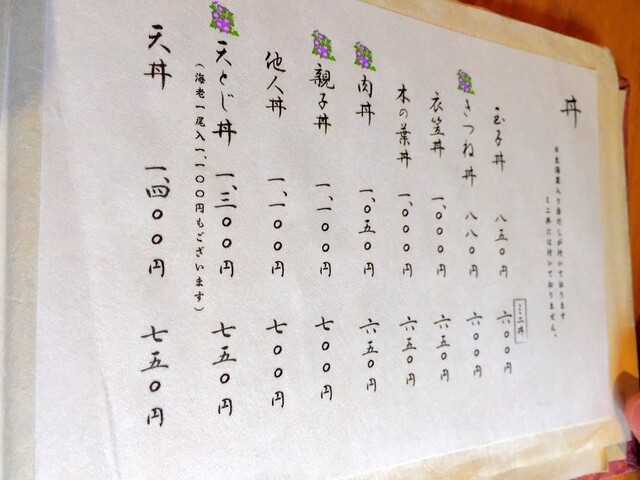 丼
※生海苔入り赤だしが付いております
ミニ丼には付いておりません。
ミニ丼
玉子丼 八五〇円 六〇〇円
きつね丼 八八〇円 六〇〇円
衣笠丼 一、〇〇〇円 六五〇円
木の葉丼 一、〇〇〇円 六五〇円
肉丼 一、〇五〇円 六五〇円
親子丼 一、一〇〇円 七〇〇円
他人丼 一、一〇〇円 七〇〇円
天とじ丼 一、三〇〇円 七五〇円
（海老一尾入一、一〇〇円もございます）
天丼 一、四〇〇円 七五〇円